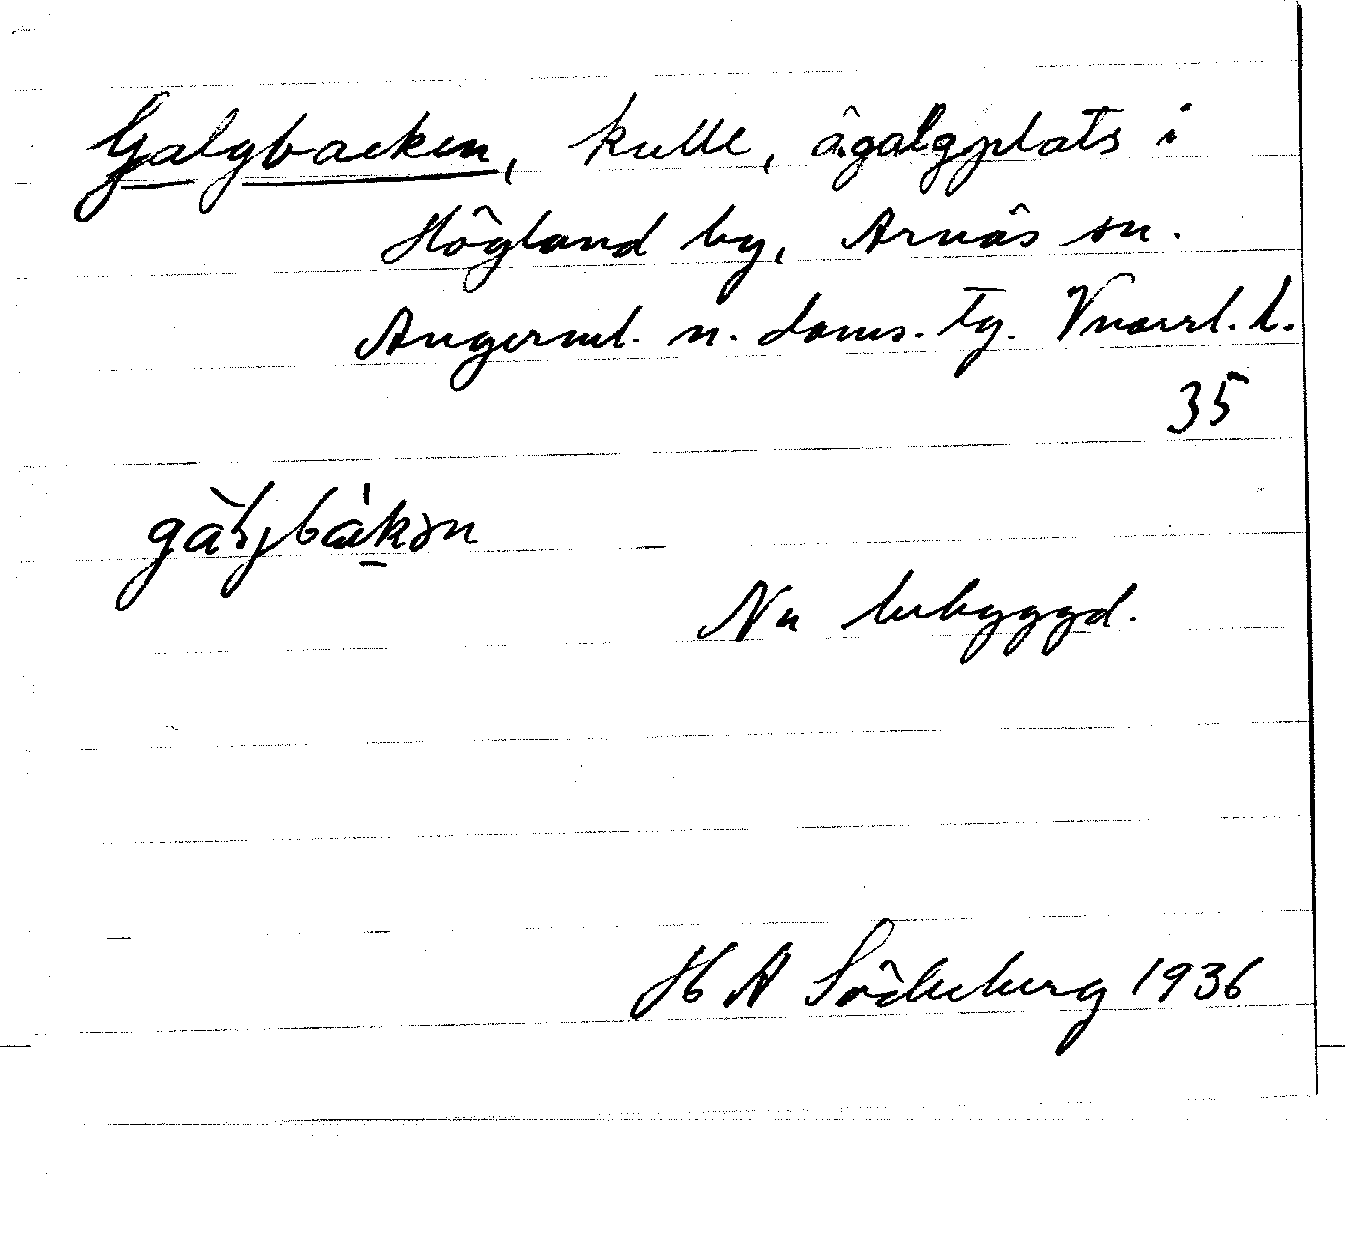 Galgbacken, kulle, å galgplats i
Högland by, Arnäs sn.
Ångerml. n. doms. tg. Vnorrl. l.
35
Nu bebyggd.
H A Söderberg 1936